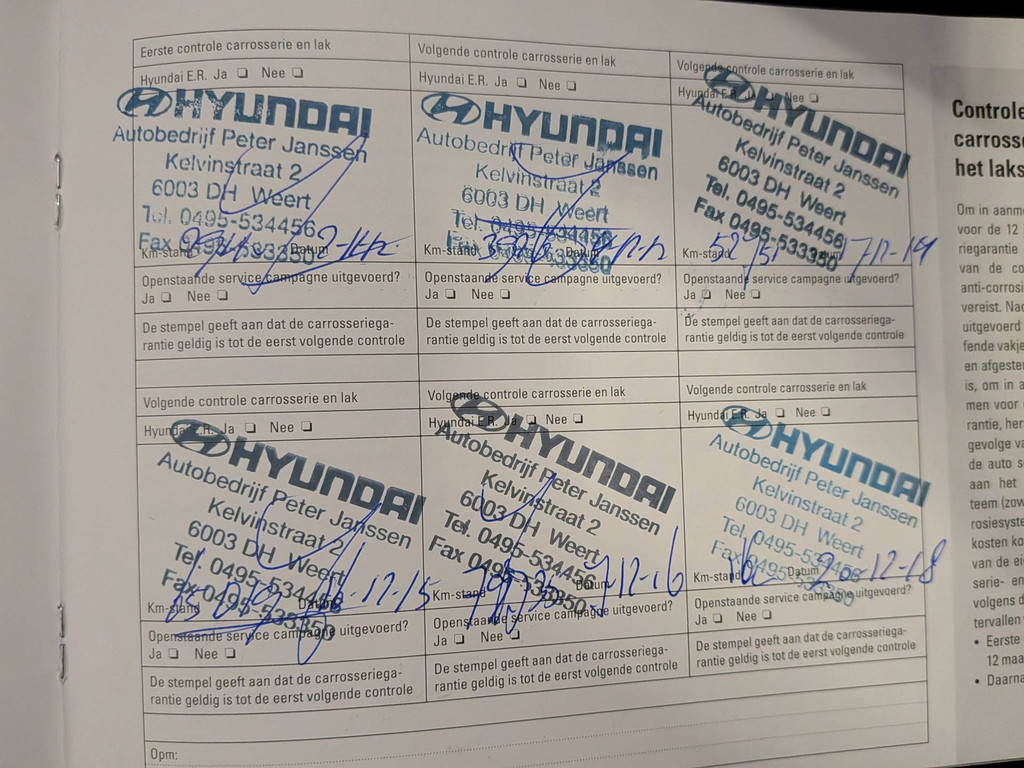 Eerste controle carrosserie en lak
Hyundai E.R. Ja ❏ Nee ❏
HYUNDAI
Autobedrijf Peter Janssen
Kelvinstraat 2
6003 DH Weert
Tel. 0495-534456
Fax 0495-533350
Km-stand Datum
Openstaande service campagne uitgevoerd?
Ja ❏ Nee ❏
De stempel geeft aan dat de carrosseriega-
rantie geldig is tot de eerst volgende controle
Volgende controle carrosserie en lak
Hyundai E.R. Ja ❏ Nee ❏
HYUNDAI
Autobedrijf Peter Janssen
Kelvinstraat 2
6003 DH Weert
Tel. 0495-534456
Fax 0495-533350
Km-stand Datum
Openstaande service campagne uitgevoerd?
Ja ❏ Nee ❏
De stempel geeft aan dat de carrosseriega-
rantie geldig is tot de eerst volgende controle
Volgende controle carrosserie en lak
Hyundai E.R. Ja Nee ❏
HYUNDAI
Autobedrijf Peter Janssen
Kelvinstraat 2
6003 DH Weert
Tel. 0495-534456
Fax 0495-533350
Km-stand 17-12-14
Openstaande service campagne uitgevoerd?
Ja ❏ Nee ❏
De stempel geeft aan dat de carrosseriega-
rantie geldig is tot de eerst volgende controle
Volgende controle carrosserie en lak
Hyundai E.R. Ja ❏ Nee ❏
HYUNDAI
Autobedrijf Peter Janssen
Kelvinstraat 2
6003 DH Weert
Tel. 0495-534456
Fax 0495-533350
Km-stand Datum 12-15
Openstaande service campagne uitgevoerd?
Ja ❏ Nee ❏
De stempel geeft aan dat de carrosseriega-
rantie geldig is tot de eerst volgende controle
Volgende controle carrosserie en lak
Hyundai E.R. Ja ❏ Nee ❏
HYUNDAI
Autobedrijf Peter Janssen
Kelvinstraat 2
6003 DH Weert
Tel. 0495-534456
Fax 0495-533350
Km-stand Datum 12-16
Openstaande service campagne uitgevoerd?
Ja ❏ Nee ❏
De stempel geeft aan dat de carrosseriega-
rantie geldig is tot de eerst volgende controle
Volgende controle carrosserie en lak
Hyundai E.R. Ja ❏ Nee ❏
HYUNDAI
Autobedrijf Peter Janssen
Kelvinstraat 2
6003 DH Weert
Tel. 0495-534456
Fax 0495-533350
Km-stand Datum 12-18
Openstaande service campagne uitgevoerd?
Ja ❏ Nee ❏
De stempel geeft aan dat de carrosseriega-
rantie geldig is tot de eerst volgende controle
Opm:
Controle
carrosse
het laks
Om in aanm
voor de 12
riegarantie
van de co
anti-corrosi
vereist. Nac
uitgevoerd
fende vakje
en afgester
is, om in a
men voor
rantie, her
gevolge va
de auto s
aan het
teem (zow
rosiesyster
kosten ko
van de ei
serie- en
volgens d
tervallen
• Eerste
12 maa
• Daarna